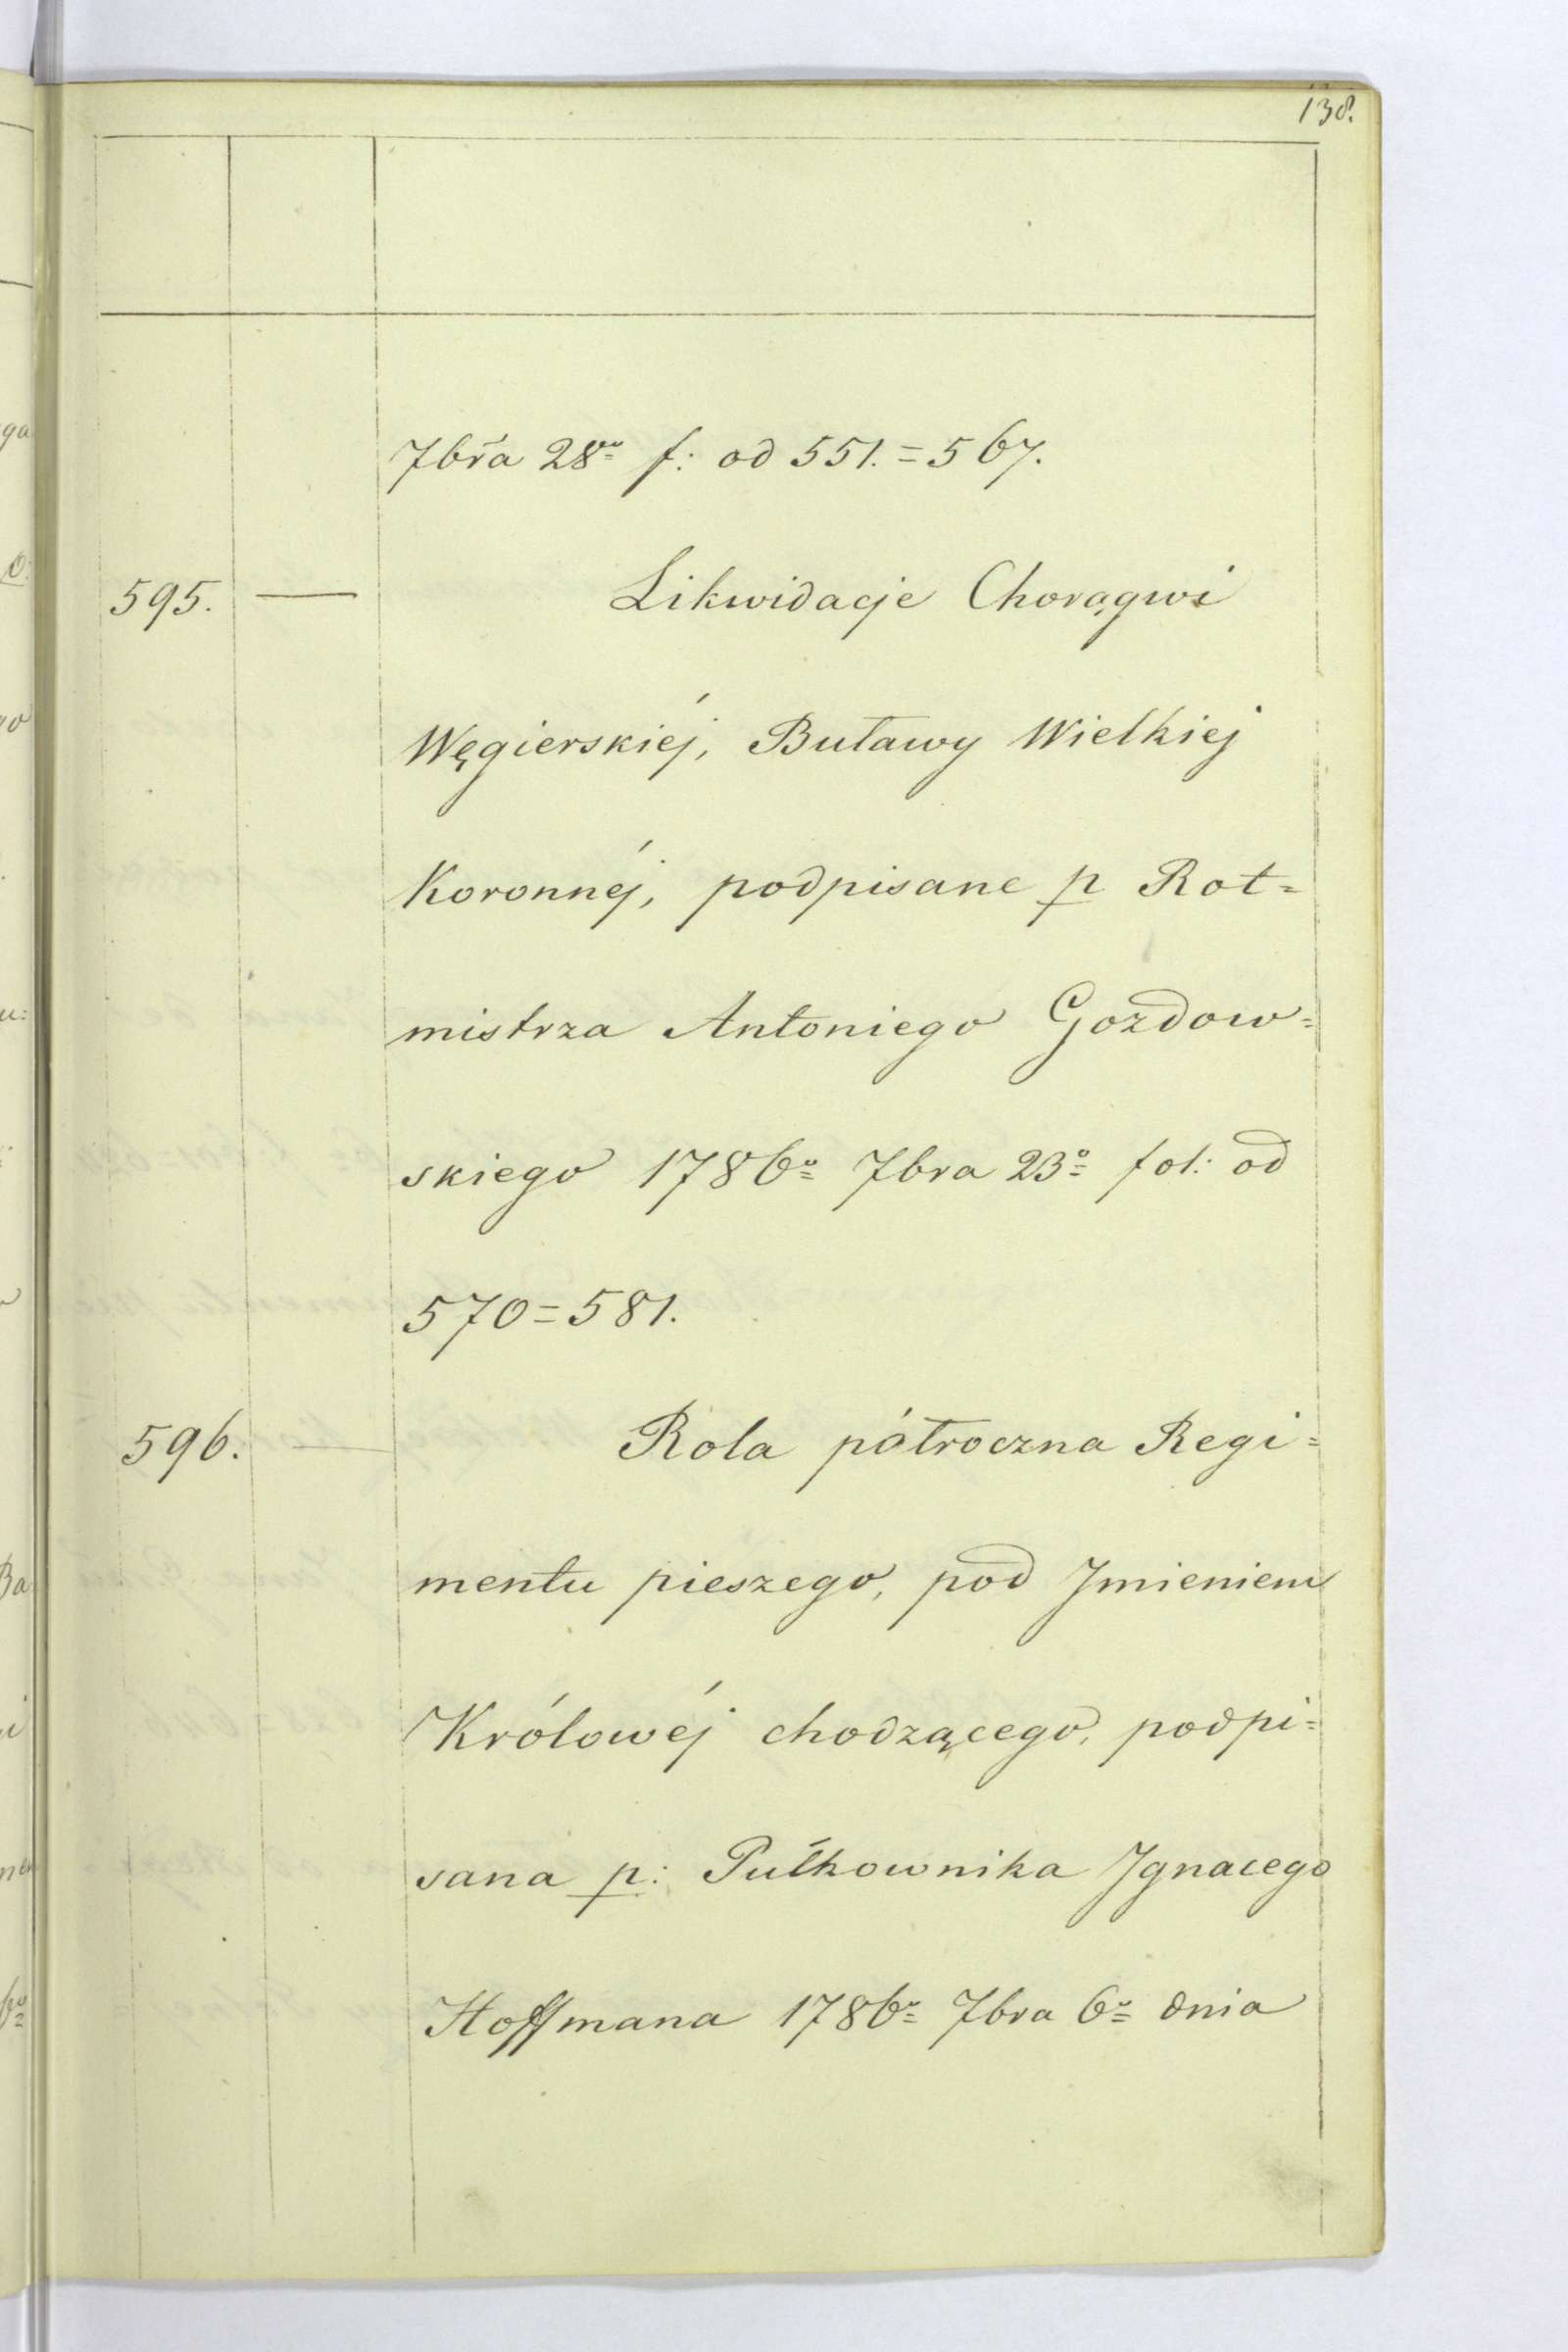 138.
7bra 28º f: od 551.=567.
595. — Likwidacje Chorągwi
Węgierskiéj, Buławy Wielkiej
Koronnéj, podpisane p Rot=
mistrza Antoniego Gozdow=
skiego 1786º 7bra 23º fol: od
570=581.
596. — Rola półroczna Regi=
mentu pieszego, pod Jmieniem
Królowéj chodzącego, podpi=
sana p: Pułkownika Jgnacego
Hoffmana 1786º 7bra 6º dnia